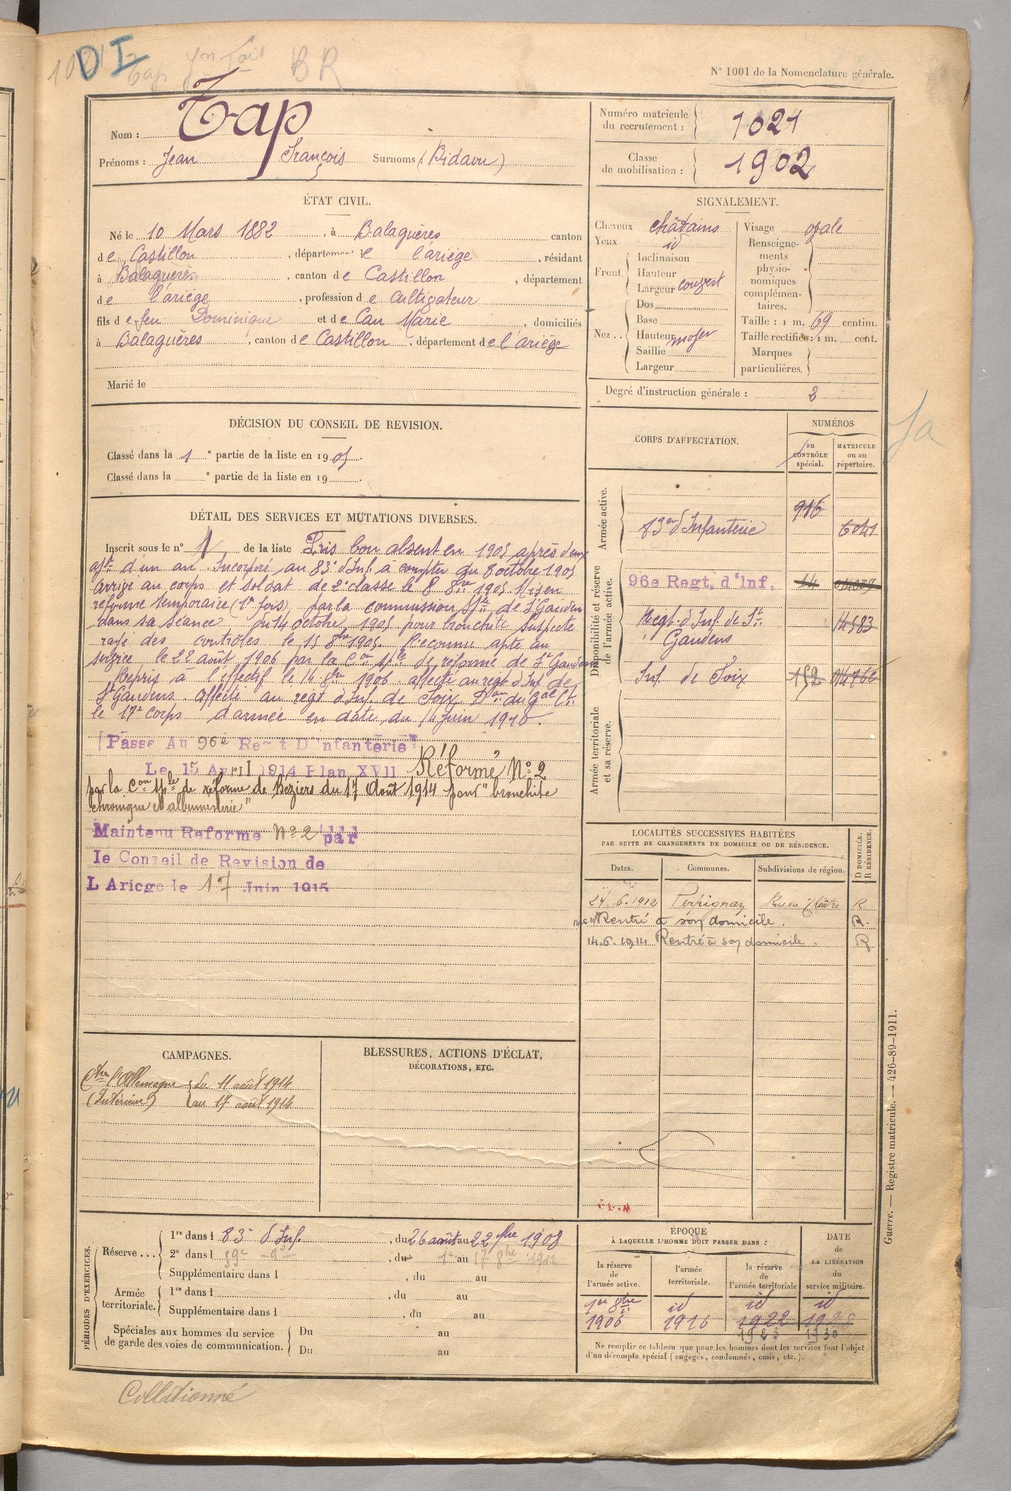 DI
BR
N° 1001 de la Nomenclature générale.
Nom : Tap
Prénoms : Jean François Surnoms (Bidaou)
Numéro matricule du recrutement : 1021
Classe de mobilisation : 1902
ÉTAT CIVIL.
Né le 10 Mars 1882, à Balaguères canton
de Castillon, département de l'ariège, résidant
à Balaguères, canton de Castillon, département
de l'ariège, profession de cultivateur
fils de feu Dominique et de Cau Marie, domiciliés
à Balaguères, canton de Castillon, département de l'ariège
Marié le
SIGNALEMENT.
Cheveux châtains
Yeux id
Front Inclinaison
Hauteur
Largeur couvert
Nez Dos
Base
Hauteur moyen
Saillie
Largeur
Visage ovale
Renseignements physionomiques complémentaires.
Taille : 1 m. 69 centim.
Taille rectifiée : 1 m. cent.
Marques particulières.
Degré d'instruction générale : 3
DÉCISION DU CONSEIL DE REVISION.
Classé dans la 1 e partie de la liste en 1905.
Classé dans la e partie de la liste en 19
DÉTAIL DES SERVICES ET MUTATIONS DIVERSES.
Inscrit sous le n° 1 de la liste Pris bon absent en 1905 après
d'un an. Incorporé au 83e d'Inf. à compter du 8 octobre 1905
arrivé au corps et soldat de 2e classe le 8 8bre 1905. Mis en
réforme temporaire (1re fois) par la commission Sple de St Gaudens
dans sa séance du 14 octobre 1905 pour bronchite suspecte
rayé des contrôles le 15 8bre 1905. Reconnu apte au
service le 22 août 1906 par la Con Sple de réforme de St Gaudens
Repris à l'effectif le 16 1906 affecté au regt d'Inf de
St Gaudens. Affecté au regt d'Inf. de Foix Don du Gal Ct
le 17e corps d'armée en date du 14 juin 1910.
Passé Au 96e Regt D'Infanterie
Le 15 Avril 1914 Plan XVII Réformé N° 2
par la Con Sple de réforme de Béziers du 17 Août 1914 pour "bronchite
chronique et albuminerie"
Maintenu Reforme N° 2 par
le Conseil de Revision de
L Ariege le 17 Juin 1915
CORPS D'AFFECTATION.
NUMÉROS
DU CONTRÔLE spécial.
MATRICULE ou au répertoire.
Armée active.
83e d'Infanterie 916 6041
Disponibilité et réserve de l'armée active.
96e Regt. d'Inf. 14
Regt d'Inf. de St Gaudens 14583
Inf. de Foix 152
Armée territoriale et sa réserve.
LOCALITÉS SUCCESSIVES HABITÉES
PAR SUITE DE CHANGEMENTS DE DOMICILE OU DE RÉSIDENCE.
Dates. Communes. Subdivisions de région. D DOMICILE. R RÉSIDENCE.
24.6.1912 Perrignay R
Rentré à son domicile. R.
14.6.1914 Rentré à son domicile. R
CAMPAGNES.
Ctre l'Allemagne du 11 août 1914
(Intérieur) au 17 août 1914
BLESSURES, ACTIONS D'ÉCLAT,
DÉCORATIONS, ETC.
PÉRIODES D'EXERCICES.
Réserve...
1re dans l 83e d'Inf., du 26 août au 22 7bre 1908
2e dans l 59e, du 1er au 17 8bre 1912
Supplémentaire dans l, du au
Armée territoriale.
1re dans l, du au
Supplémentaire dans l, du au
Spéciales aux hommes du service de garde des voies de communication.
Du au
Du au
ÉPOQUE
À LAQUELLE L'HOMME DOIT PASSER DANS :
la réserve de l'armée active.
l'armée territoriale.
la réserve de l'armée territoriale
DATE de LA LIBÉRATION du service militaire.
1er 8bre 1906
id 1916
id 1922
id 1928
Ne remplir ce tableau que pour les hommes dont les services font l'objet
d'un décompte spécial (engagés, condamnés, omis, etc.).
Guerre. — Registre matricule. — 426-89-1911.
Collationné